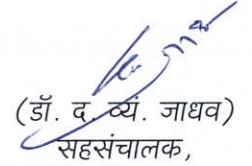 (डॉ. द. व्यं. जाधव)
सहसंचालक,